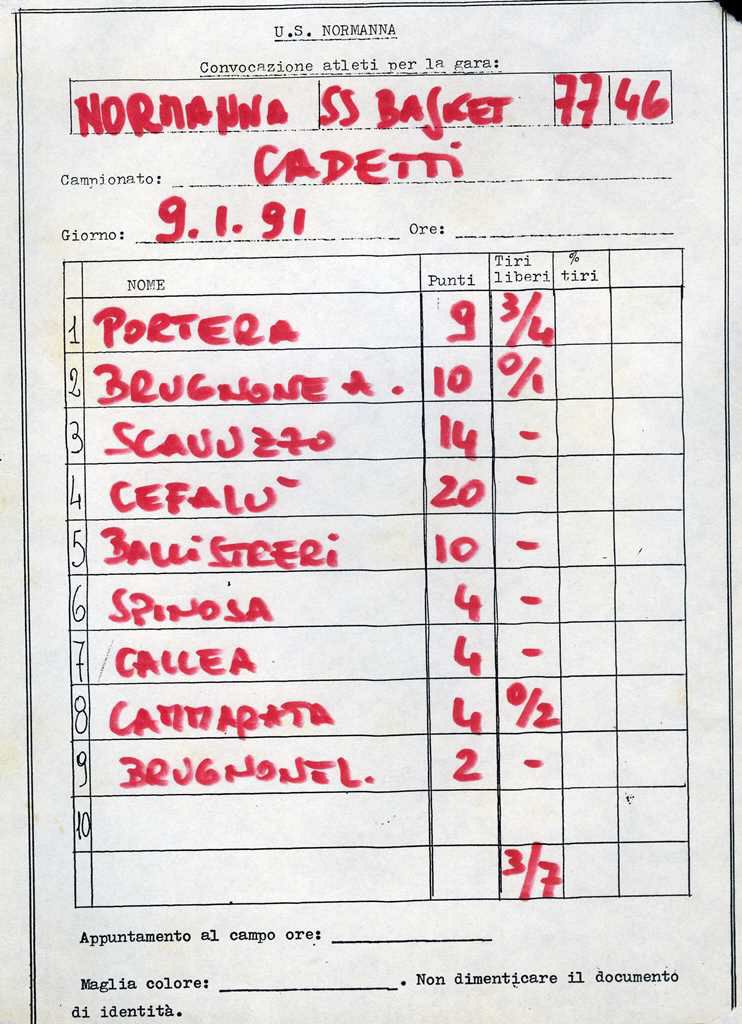 U.S. NORMANNA
Convocazione atleti per la gara:
NORMANNA SS BASKET 77 46
Campionato: CADETTI
Giorno: 9.1.91 Ore:
NOME Punti Tiri liberi % tiri
1 PORTERA 9 3/4
2 BRUGNONE A. 10 0/1
3 SCAVUZZO 14 -
4 CEFALU' 20 -
5 BALLISTRERI 10 -
6 SPINOSA 4 -
7 CALLEA 4 -
8 CAMMARATA 4 0/2
9 BRUGNONE L. 2 -
10
3/7
Appuntamento al campo ore:
Maglia colore: . Non dimenticare il documento
di identità.